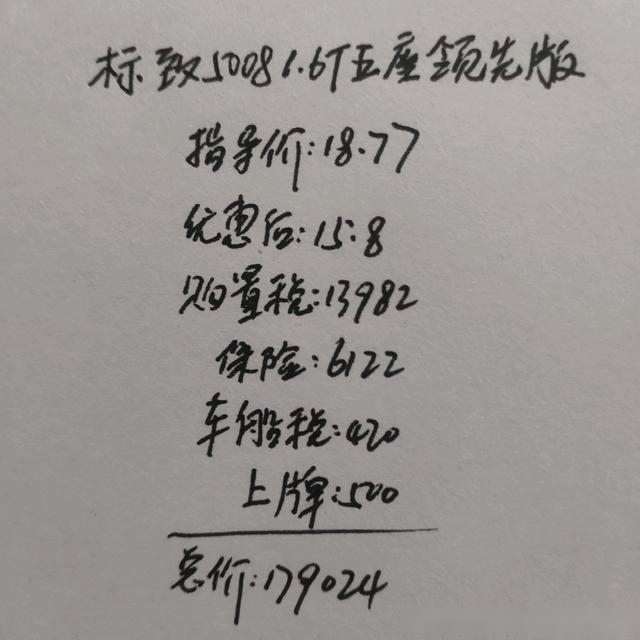 标致5008 1.6T五座领先版
指导价:18.77
优惠后:15:8
购置税:13982
保险:6122
车船税:420
上牌:500
总价:179024